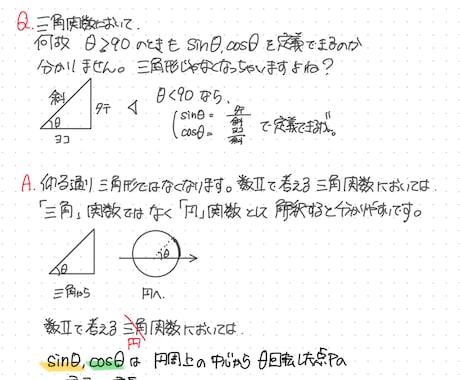 Q. 三角関数において.
何故 θ≧90 のときも sinθ, cosθ を定義できるのか
分かりません。三角形じゃなくなっちゃいますよね?
斜 タテ θ ヨコ
θ<90 なら、
sinθ = タテ/斜
cosθ = ヨコ/斜 で定義できるね。
A. 仰る通り 三角形ではなくなります。数Ⅱで考える 三角関数においては
「三角」関数ではなく「円」関数として 解釈すると分かりやすいです。
θ θ
三角から 円へ.
数Ⅱで考える 三角関数においては
円
sinθ, cosθ は 円周上の 中心から θ回転した点Pの